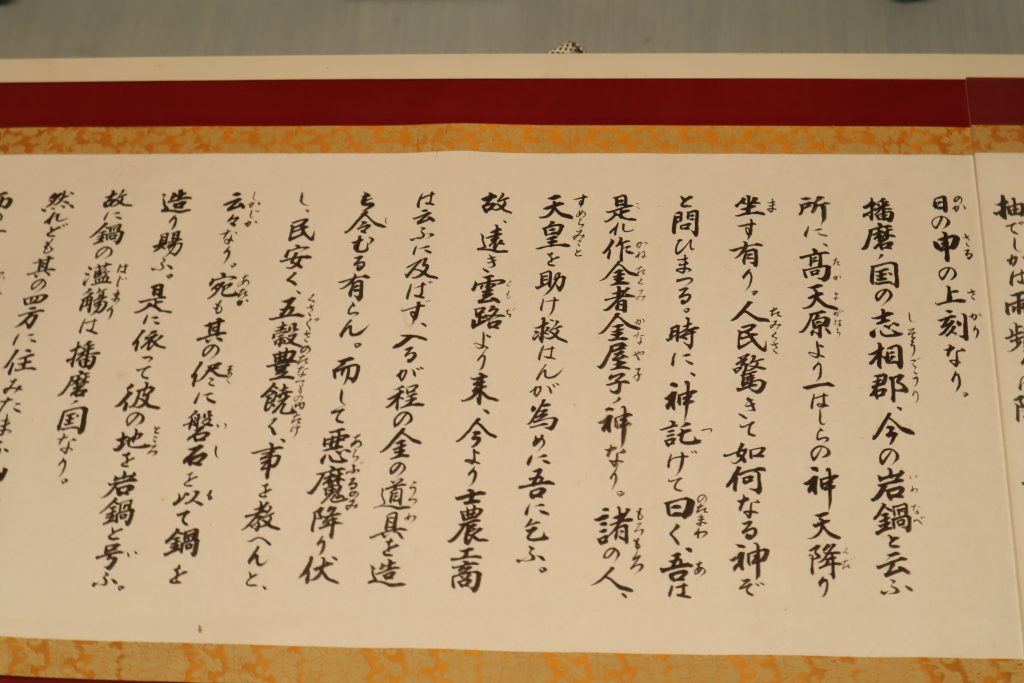 抽でしかは雨歩
日の申の上刻なり。
播磨ノ国の志相郡、今の岩鍋と云ふ
所に、高天原より一はしらの神天降り
坐す有り。人民驚きて如何なる神ぞ
と問ひまつる。時に、神託げて曰く、吾は
是れ作金者金屋子ノ神なり。諸の人、
天皇を助け救はんが為めに吾に乞ふ。
故、遠き雲路より来、今より士農工商
は云ふに及ばず、入るが程の金の道具を造
ら令むる有らん。而して悪魔降り伏
し、民安く、五穀豊饒く、事を教へんと、
云々なり、宛も其の侭に磐石を以て鍋を
造り賜ふ。是に依って彼の地を岩鍋と号ふ。
故に鍋の濫觴は播磨ノ国なり。
然れども其の四方に住みたまふ